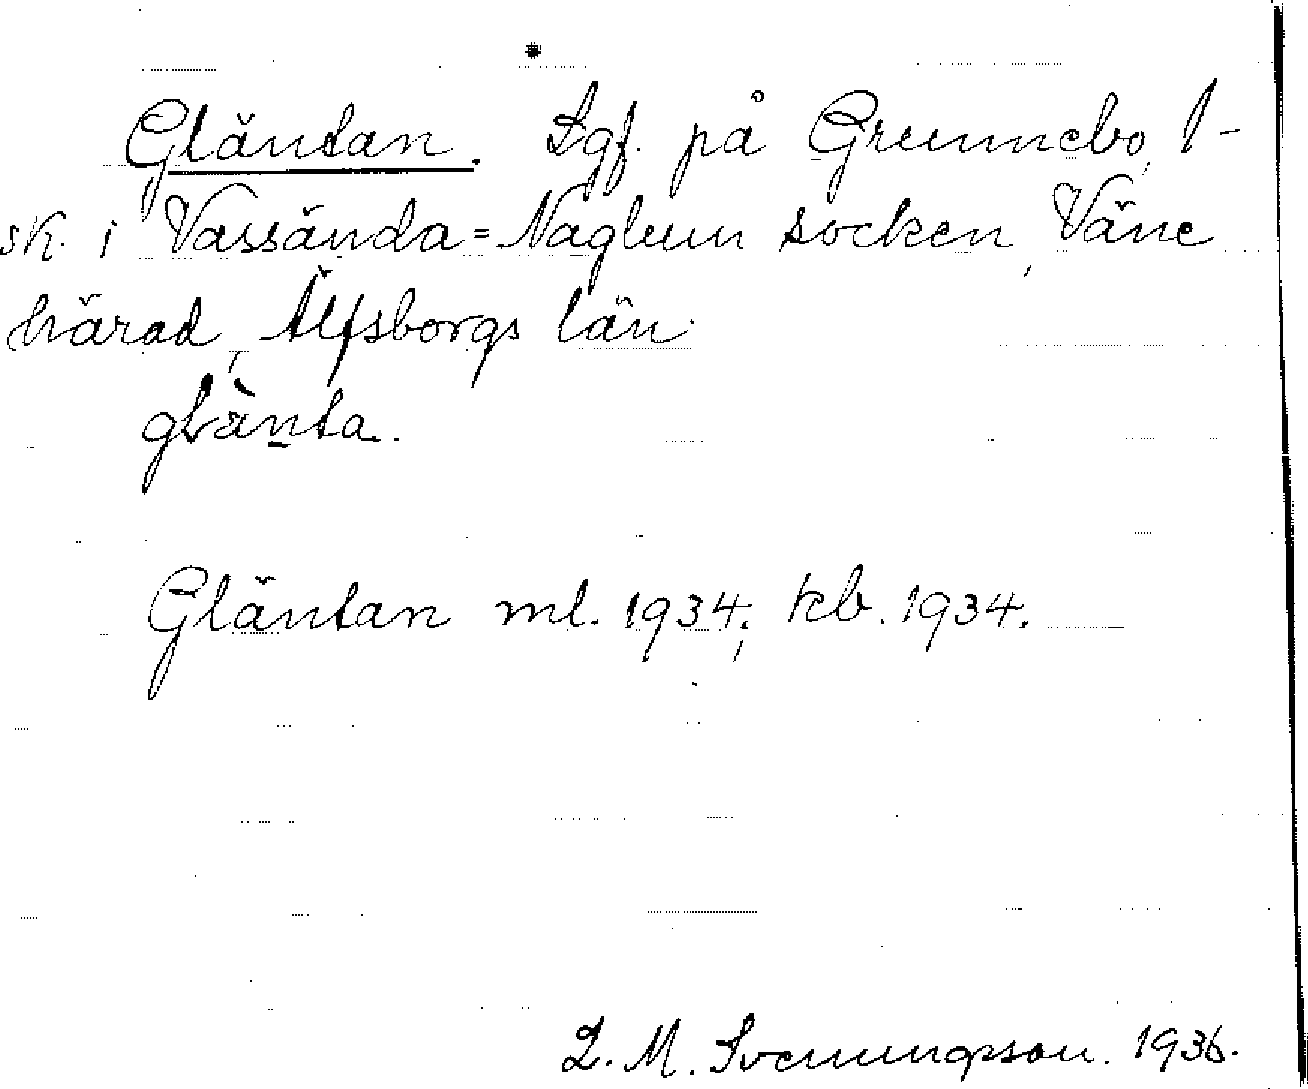 Gläntan. Lgf. på Grunnebo, 1-
sk. i Vassända=Naglum socken, Väne
härad, Älfsborgs län.
glànta.
Gläntan ml. 1934; kb. 1934.
L. M. Svenungsson. 1936.